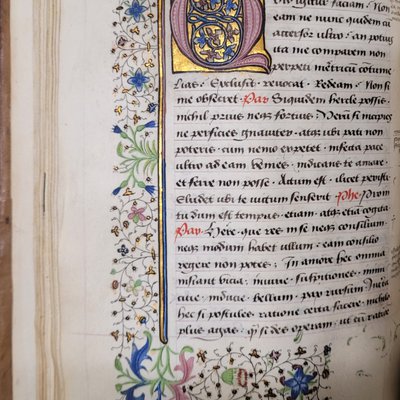 uid igitur faciam · Non
eam ne nunc quidem cū
accersor ultro · an potius
ita me comparem non
perpeti meretricum cōtume
lias · Exclusit · revocat · Redeam · Non si
me obsecret · Par Siquidem hercle possis ·
nichil prius neqꝫ fortius · Verū si incipies
ne perficies gnaviter · atqꝫ ubi pati non
poteris · cum nemo expetet · infecta pace
ultro ad eam venies · indicans te amare ·
et ferre non posse · Actum est · ilicet peristi ·
Eludet ubi te victum senserit · Phe Proin
tu dum est tempus · etiam · atqꝫ etiā cogita
Par Here · que res · in se neqꝫ consilium
neqꝫ modum habet ullum · eam consilio
regere non potes · In amore hec omnia
insunt vicia · iniurie · suspitiones · inimi
citie · inducie · bellum · pax rursum Incerta
hec si postules · ratione certa facere · nichilo
plus agas · qͣ si des operam · ut cū ratione